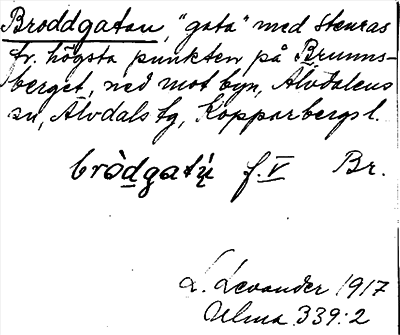 Broddgatan, "gata" med stenras
fr. högsta punkten på Brunns-
berget, ned mot byn, Älvdalens
sn, Älvdals tg, Kopparbergs l.
bròdgatų̀ f. V Br.
L. Levander 1917
Ulma 339:2